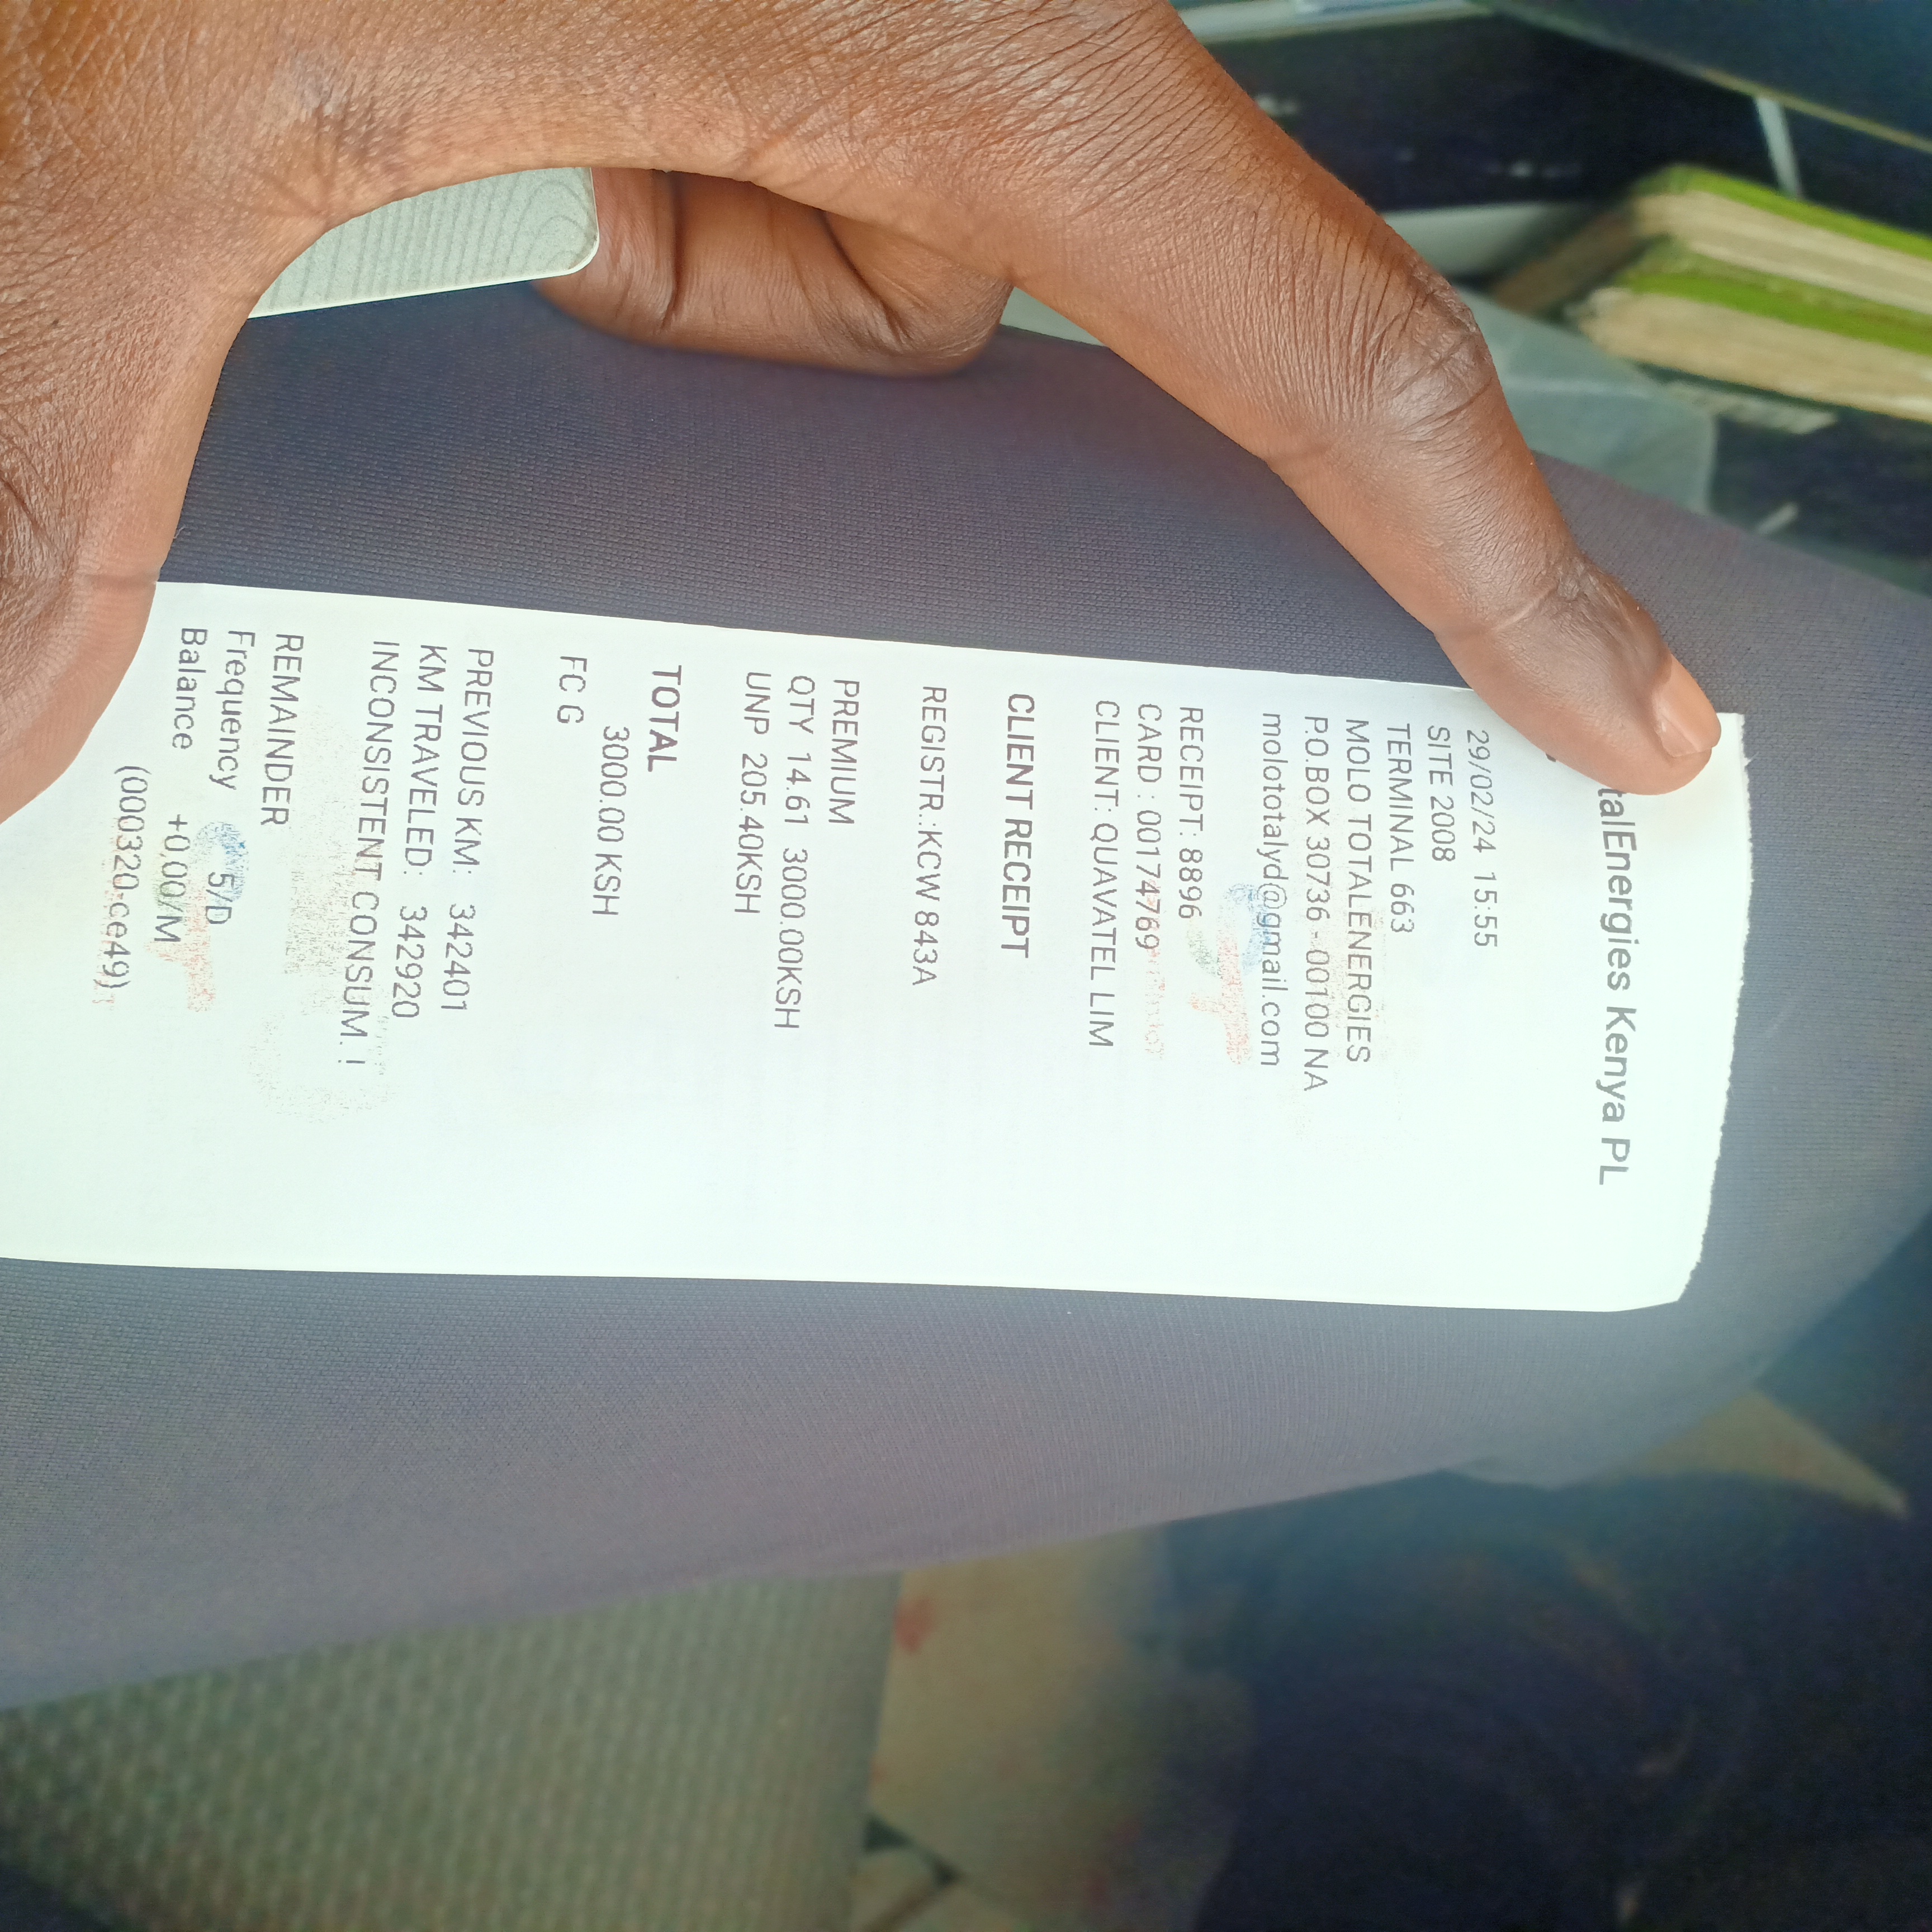 talEnergies Kenya PL
29/02/24 15:55
SITE 2008
TERMINAL 663
MOLO TOTALENERGIES
P.O.BOX 30736 - 00100 NA
molototalyd@gmail.com
RECEIPT: 8896
CARD : 00174769
CLIENT: QUAVATEL LIM
CLIENT RECEIPT
REGISTR.:KCW 843A
PREMIUM
QTY 14.61 3000.00KSH
UNP 205.40KSH
TOTAL
3000.00 KSH
FC G
PREVIOUS KM: 342401
KM TRAVELED: 342920
INCONSISTENT CONSUM. !
REMAINDER
Frequency 5/D
Balance +0,00/M
(000320-ce49)